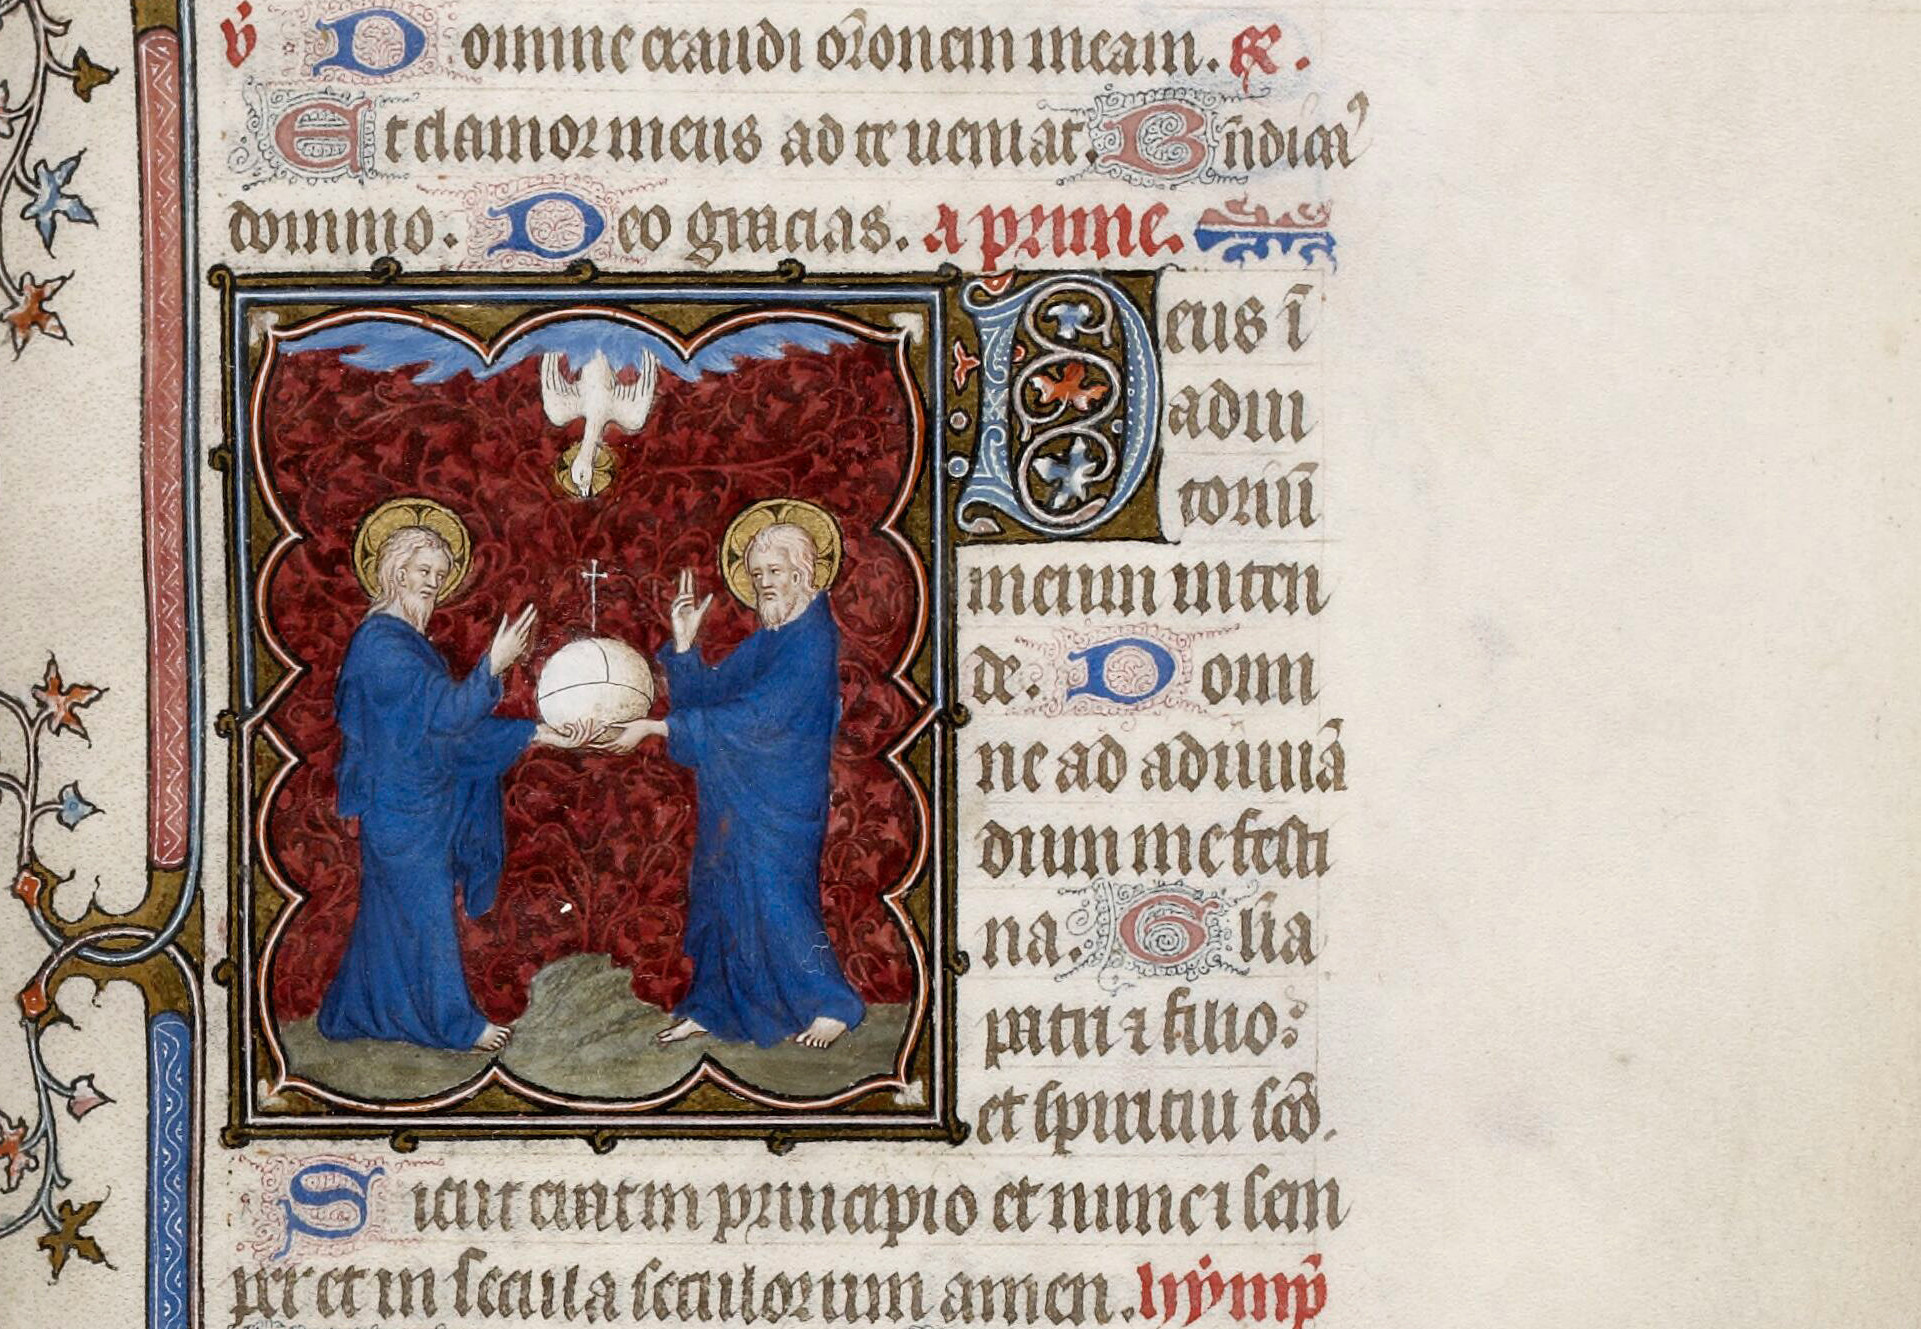 v̄ Domine exaudi or̄onem meam. R̄.
Et clamor meus ad te ueniat. Bn̄dicaꝰ
domino. Deo gracias. A prime.
Deus ī
adiu
toriū
meum inten
de. Domi
ne ad adiuuā
dum me festi
na. Gl̄ia
patri ⁊ filio:
et spiritui sc̄o.
Sicut erat in principio et nunc ⁊ sem
per et in secula seculorum amen. hympn̄